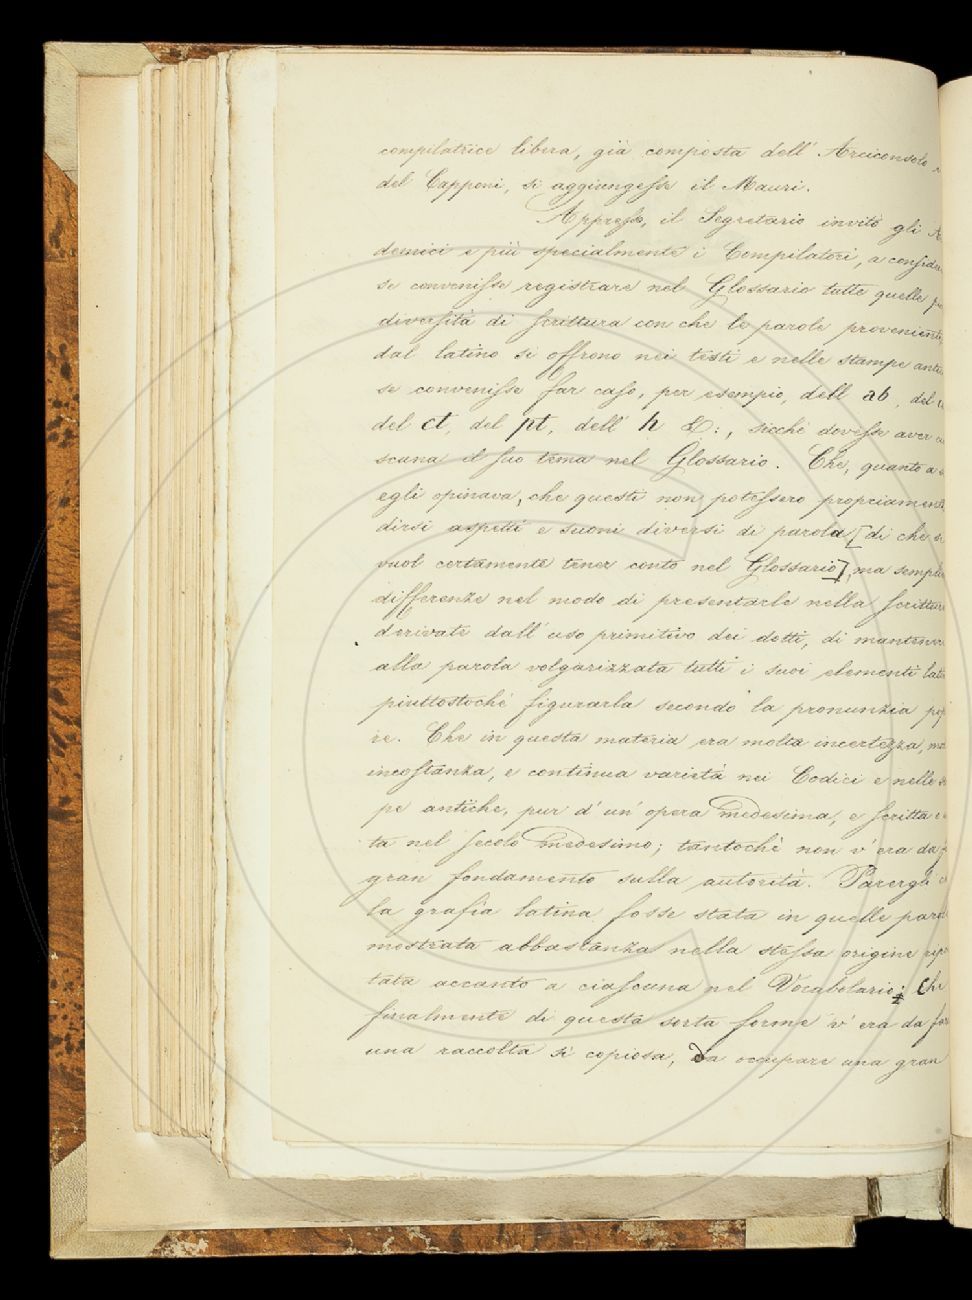 compilatrice libera, già composta dell' Arciconsolo e
del Capponi, si aggiungesse il Mauri.
Appresso, il Segretario invitò gli Ac
demici e più specialmente i Compilatori, a consider
se convenisse registrare nel Glossario tutte quelle
diversità di scrittura con che le parole provenienti
dal latino si offrono nei testi e nelle stampe anti
se convenisse far caso, per esempio, dell' ab, del
del ct, del pt, dell' h &:, sicché dovesse aver
scuna il suo tema nel Glossario. Che, quanto a
egli opinava, che questi non potessero propriament
dirsi aspetti e suoni diversi di parola [di che si
vuol certamente tener conto nel Glossario], ma sempli
differenze nel modo di presentarle nella scrittura
derivate dall' uso primitivo dei dotti, di mantener
alla parola volgarizzata tutti i suoi elementi lati
piuttostochè figurarla secondo la pronunzia pop
re. Che in questa materia era molta incertezza, mo
incostanza, e continua varietà nei Codici e nelle s
pe antiche, pur d' un' opera medesima, e scritta e
ta nel secolo medesimo; tantochè non v' era da f
gran fondamento sulla autorità. Parergli
la grafia latina fosse stata in quelle parol
mostrata abbastanza nella stessa origine ripo
tata accanto a ciascuna nel Vocabolario; che
finalmente di questa sorta forme v' era da far
una raccolta sì copiosa, da occupare una gran